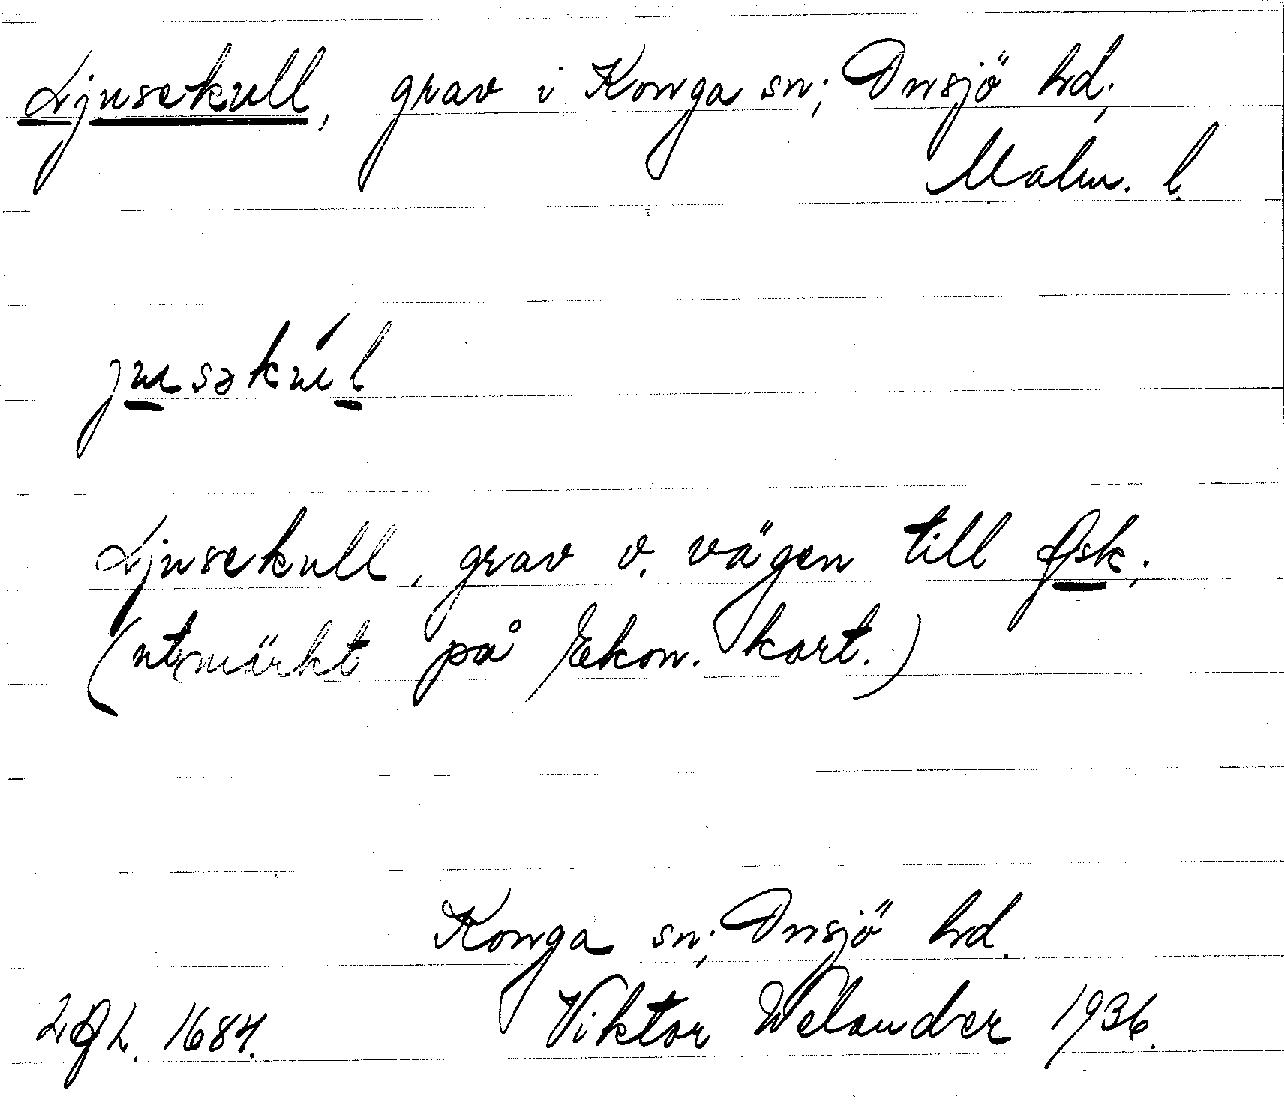 Ljusekull, grav i Konga sn; Onsjö hd;
Malm. l.
jusəkul
Ljusekull, grav v. vägen till Øsk;
(utmärkt på Ekon. kart.)
Konga sn; Onsjö hd.
LAL. 1684. Viktor Welander 1936.